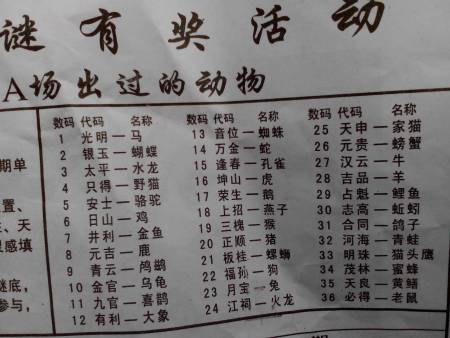 谜有奖活动
A场出过的动物
数码 代码 名称
1 光明—马
2 银玉—蝴蝶
3 太平—水龙
4 只得—野猫
5 安士—骆驼
6 日山—鸡
7 井利—金鱼
8 元吉—鹿
9 青云—鸬鹚
10 金官—乌龟
11 九官—喜鹊
12 有利—大象
数码 代码 名称
13 音位—蜘蛛
14 万金—蛇
15 逢春—孔雀
16 坤山—虎
17 荣生—鹅
18 上招—燕子
19 三槐—猴
20 正顺—猪
21 板桂—螺蛳
22 福孙—狗
23 月宝—兔
24 江祠—火龙
数码 代码 名称
25 天申—家猫
26 元贵—螃蟹
27 汉云—牛
28 吉品—羊
29 占魁—鲤鱼
30 志高—蚯蚓
31 合同—鸽子
32 河海—青蛙
33 明珠—猫头鹰
34 茂林—蜜蜂
35 天良—黄鳝
36 必得—老鼠
期单
置、
、天
灵感填
谜底,
参与,